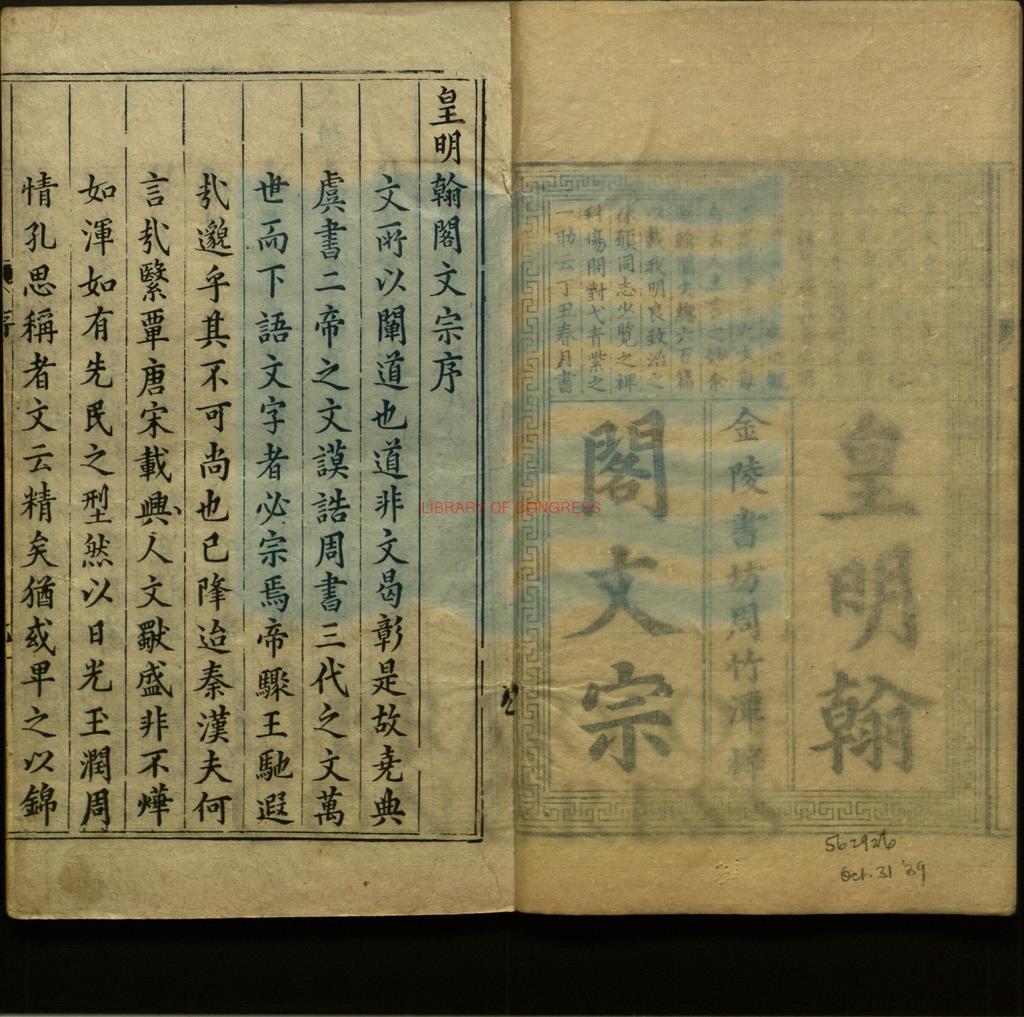 皇明翰
金陵書坊周竹潭
閣文宗
載我明良致治之
休願同志少覽之裨
科場開對弋青紫之
一助云丁丑春月書
562926
Oct. 31 '39
LIBRARY OF CONGRESS
皇明翰閣文宗序
文所以闡道也道非文曷彰是故堯典
虞書二帝之文謨誥周書三代之文萬
世而下語文字者必宗焉帝驟王馳遐
㢤邈乎其不可尚也已降迨秦漢夫何
言㢤繄覃唐宋載興人文猷盛非不燁
如渾如有先民之型然以日光玉潤周
情孔思稱者文云精矣猶或卑之以錦